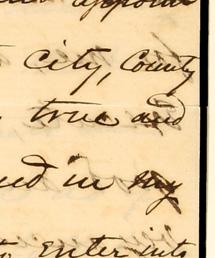 appoint
City, County
true and
ed in my
to enter into